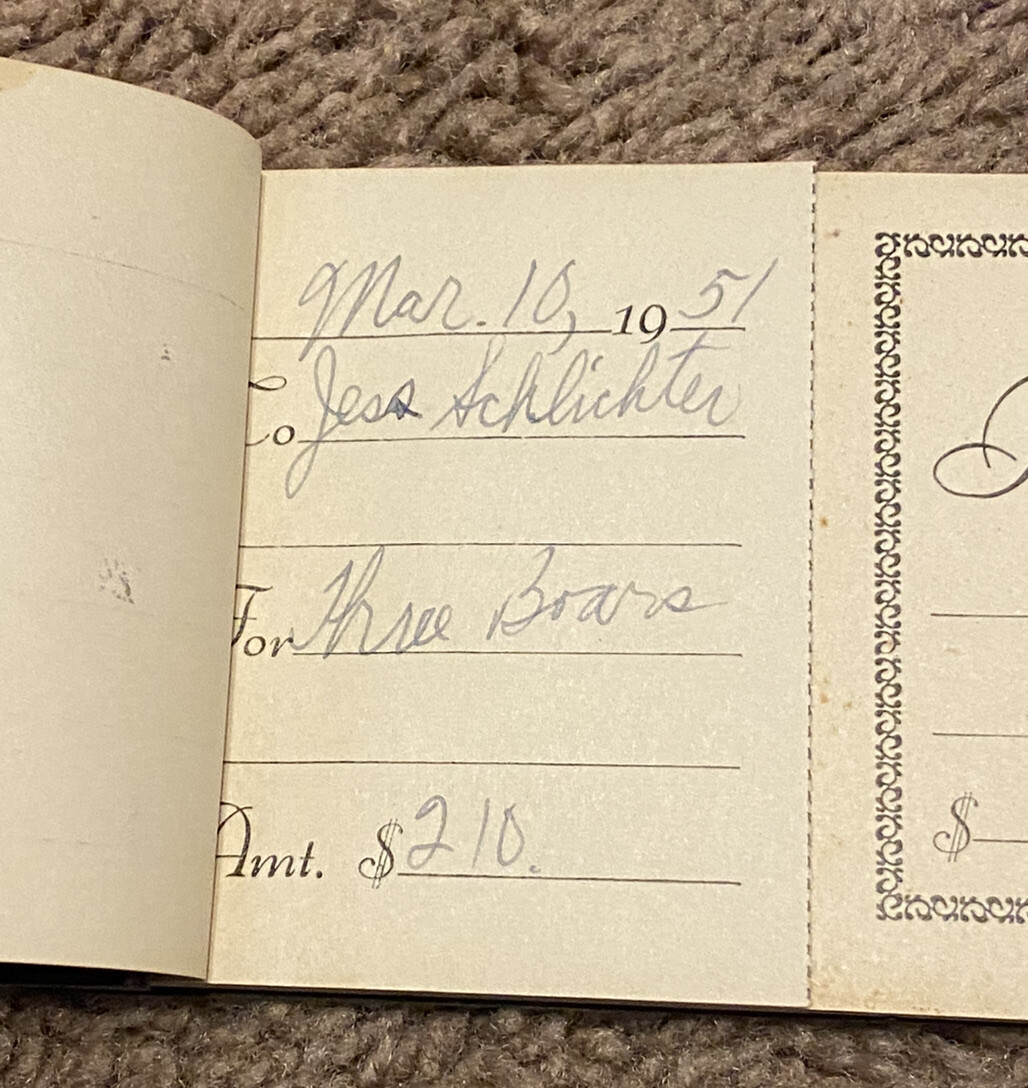 Mar. 10, 1951
To Jess Schlichter
For Three Boars
Amt. $210.
$